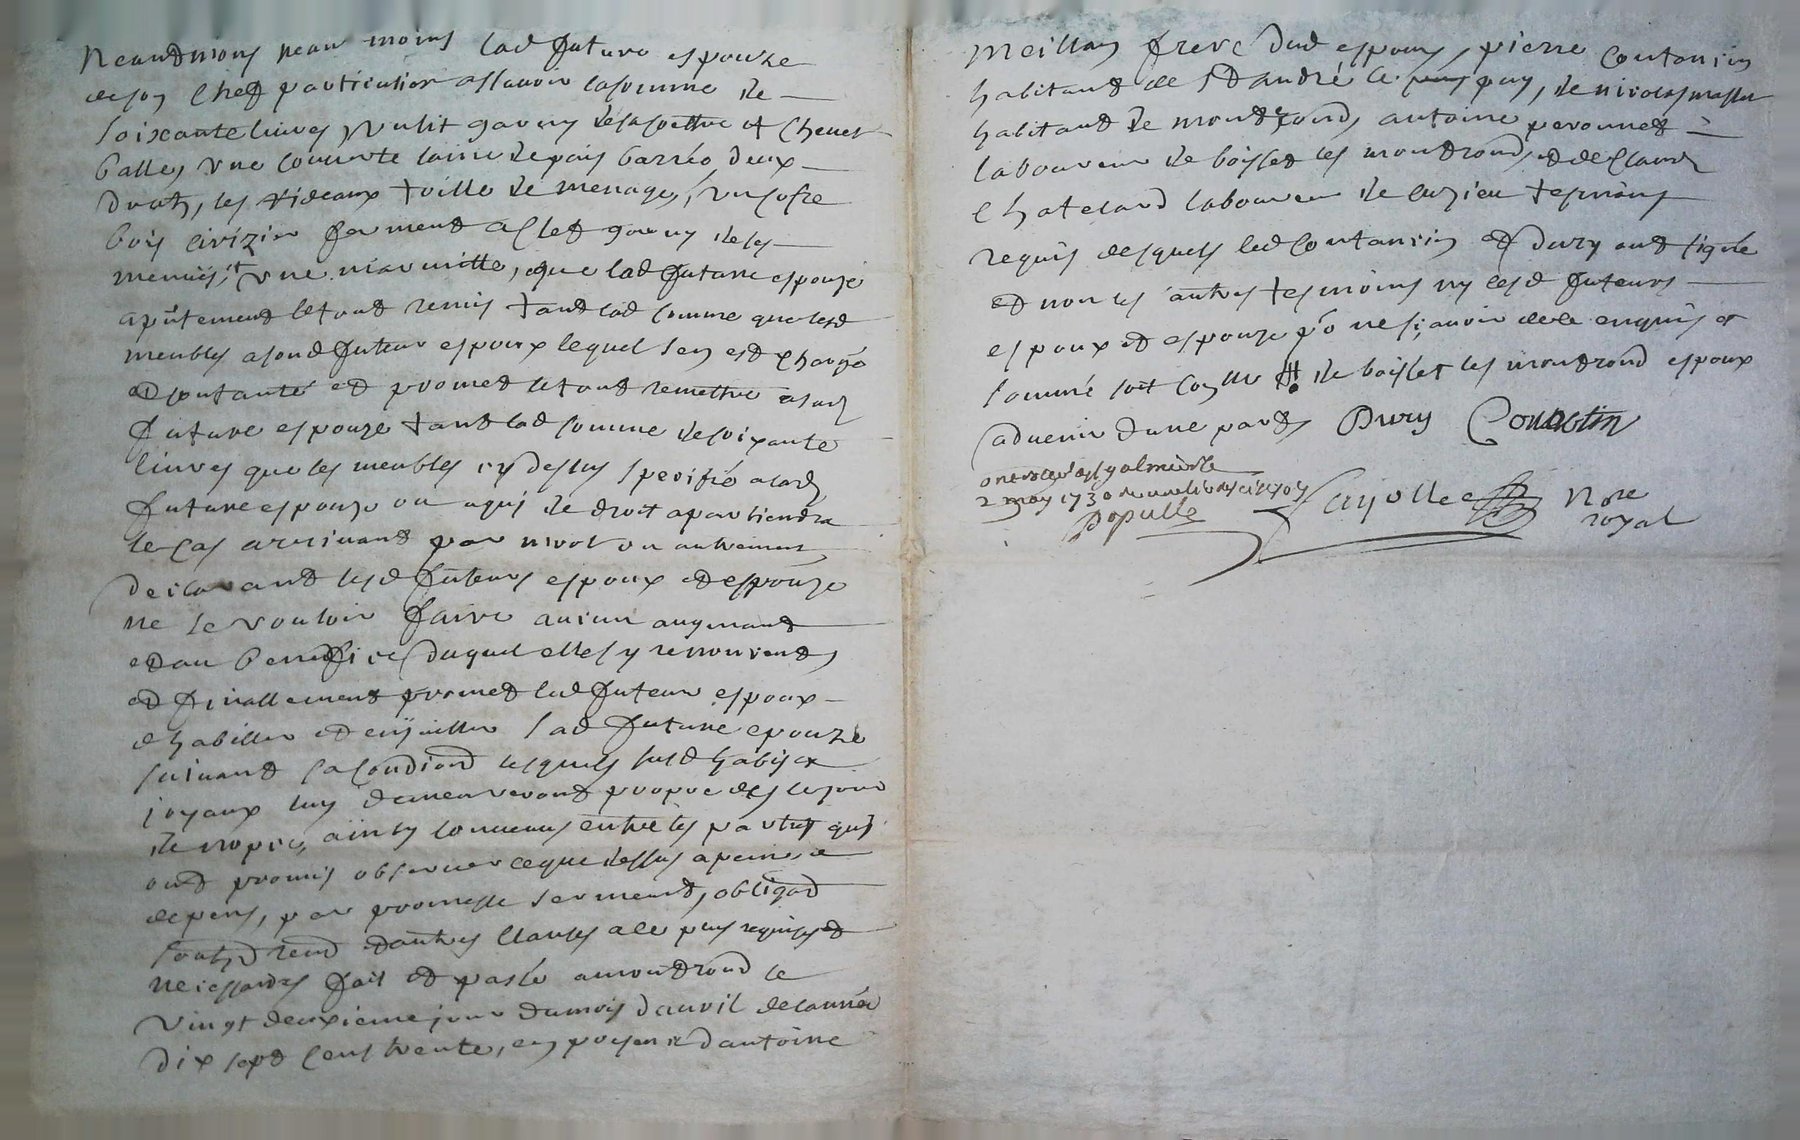 Neantmoins nean moins lad future espouze
de son chef particulier assavoir la somme de
soixante livres, un lit garny de sa coettre et chevet
balles une couverte laine de pais barrée deux
draps, les rideaux toille de menage, un cofre
bois cerizier fermend a clef garny de ses
menuis, et une marmitte, que lad future espouze
apûtement le tout remis tant lad somme que lesd
meubles a sond futeur espoux lequel s'en est chargé
et contanté et promet le tout remettre a lad
future espouze tant lad somme de soixante
livres que les meubles cy dessus speciffié a lad
future espouze ou a qui de droit apartiendra
le cas arrivant par mort ou autrement
declarant lesd futeurs espoux et espouze
ne se vouloir faire aucun augmant
et au beneffice duquel elles y renoncent,
et finallement promet led futeur espoux
d'habiller et enjoiller sad future epouze
suivant sa condiond lesquels susd habis et
joyaux luy demeureront propre des le jour
de nopce, ainsy convenus entre les parties qui
ont promis observer ce que dessus a peine de
depens, par promesse serment, obligaon
soub renon et autres clauses a ce plus requises et
necessaires fait et passé a montrond le
vingt deuxieme jour du mois d'avril de l'année
dix sept cent trente, en presence d'antoine
meillan frere dud espoux, pierre coutantin
habitant de St andré le puy, de nicolas masset
habitant de montrond, antoine peronnet
laboureur de boisset les montrond, et de claude
chatelard laboureur de cuzieu tesmoins
requis desquels led coutantin et dury ont signé
et non les autres tesmoins ny lesd futeurs
espoux et espouze p'o ne sçavoir de ce enquis et
sommé soit conllé # de boisset les montrond espoux
advenir d'une part, Dury Coutantin
controllé a St galmier le
2 may 1730
Populle
Fayolle Nore
royal